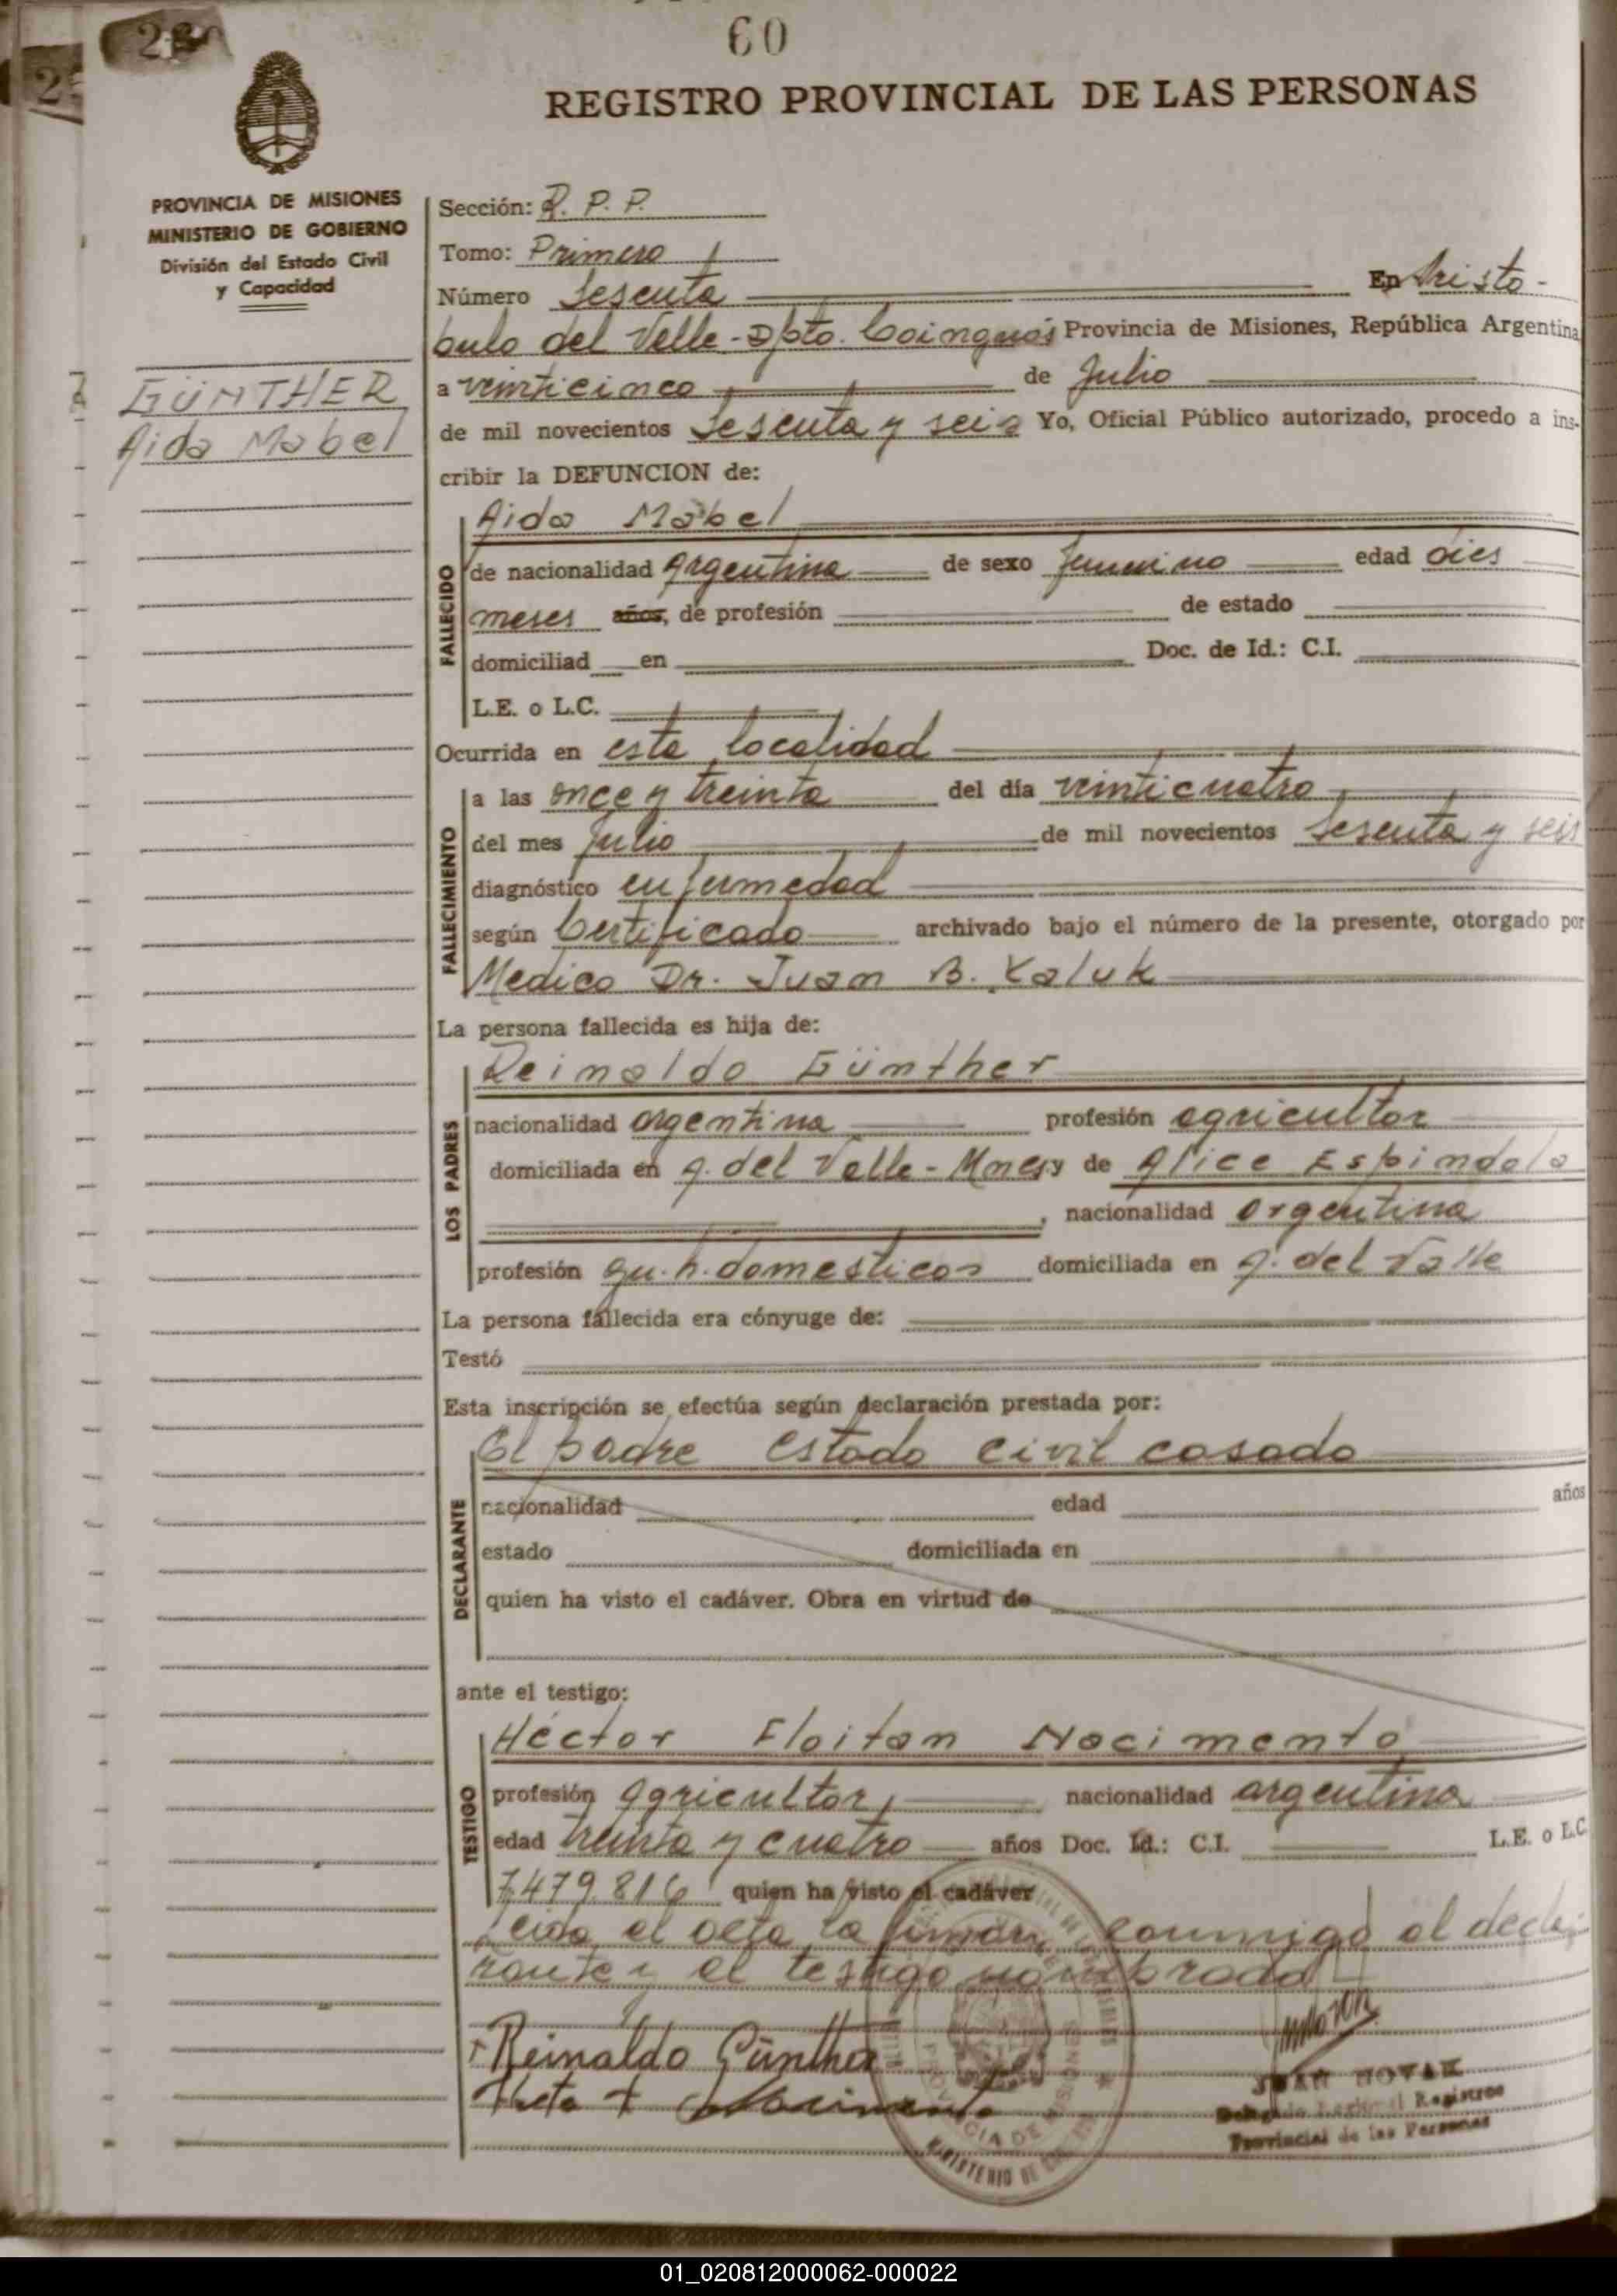 60
REGISTRO PROVINCIAL DE LAS PERSONAS
PROVINCIA DE MISIONES
MINISTERIO DE GOBIERNO
División del Estado Civil
y Capacidad
GÜNTHER
Aida Mabel
Sección: R. P. P.
Tomo: Primero
Número Sesenta En Aristo-
bulo del Valle - Dpto. Cainguás Provincia de Misiones, República Argentina
a veinticinco de Julio
de mil novecientos Sesenta y seis Yo, Oficial Público autorizado, procedo a ins-
cribir la DEFUNCION de:
Aida Mabel
FALLECIDO
de nacionalidad Argentina de sexo femenino edad dies
meses años, de profesión de estado
domiciliad en Doc. de Id.: C.I.
L.E. o L.C.
Ocurrida en esta localidad
FALLECIMIENTO
a las once y treinta del día veinticuatro
del mes Julio de mil novecientos Sesenta y seis
diagnóstico enfermedad
según Certificado archivado bajo el número de la presente, otorgado por
Medico Dr. Juan B. Kaluk
La persona fallecida es hija de:
Reinaldo Günther
LOS PADRES
nacionalidad argentina profesión agricultor
domiciliada en A. del Valle - Mnes. y de Alice Espindola
, nacionalidad argentina
profesión qu. h. domesticos domiciliada en A. del Valle
La persona fallecida era cónyuge de:
Testó
Esta inscripción se efectúa según declaración prestada por:
El padre estado civil casado
DECLARANTE
nacionalidad edad años
estado domiciliada en
quien ha visto el cadáver. Obra en virtud de
ante el testigo:
Héctor Floitan Nacimento
TESTIGO
profesión Agricultor nacionalidad argentina
edad treinta y cuatro años Doc. Id.: C.I. L.E. o L.C.
7.479.816 quien ha visto el cadáver
Leida el acta la firman conmigo el decla-
rante y el testigo nombrado
Reinaldo Günther
Nacimento
JUAN NOVAK
Delegado Regional Registros
Provincial de las Personas
PROVINCIA DE MISIONES
MINISTERIO DE
01_020812000062-000022